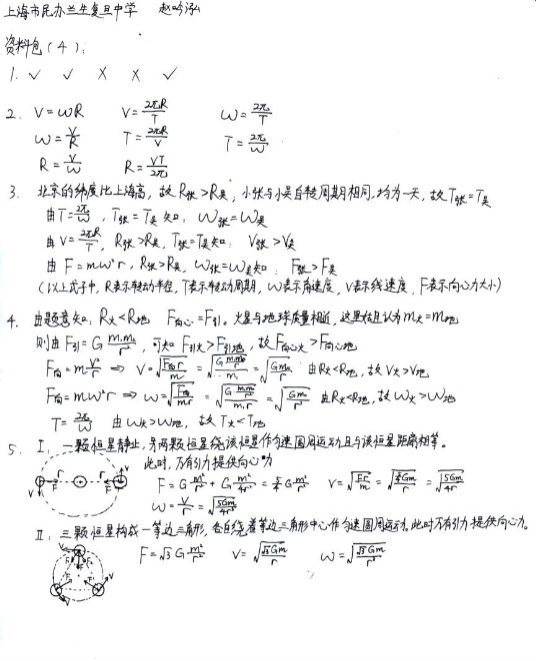 上海市民办兰生复旦中学 赵吟泓
资料包(4):
1. ✓ ✓ × × ✓
2. V=ωR V=2πR/T ω=2π/T
ω=V/R T=2πR/V T=2π/ω
R=V/ω R=VT/2π
3. 北京的纬度比上海高,故R张>R吴,小张与小吴自转周期相同,均为一天,故T张=T吴
由T=2π/ω,T张=T吴知:ω张=ω吴
由V=2πR/T,R张>R吴,T张=T吴知:V张>V吴
由F=mω²r,R张>R吴,ω张=ω吴知:F张>F吴
(以上式子中,R表示转动半径,T表示转动周期,ω表示角速度,V表示线速度,F表示向心力大小)
4. 由题意知:R火<R地 F向心=F引,火星与地球质量相近,这里姑且认为m火=m地
则由F引=G m₁m₂/r²,可知F引火>F引地,故F向心火>F向心地
F向=m V²/r ⇒ V=√(F向r/m)=√(G m₁m₂/r/m)=√(Gm/r) 由R火<R地,故V火>V地
F向=mω²r ⇒ ω=√(F向/mr)=√(G m₁m₂/r²/m₁r)=√(Gm/r³) 由R火<R地,故ω火>ω地
T=2π/ω 由ω火>ω地,故T火<T地
5. Ⅰ. 一颗恒星静止,另两颗恒星绕该恒星作匀速圆周运动且与该恒星距离相等。
此时,万有引力提供向心力
F=G m²/r²+G m²/4r²=5/4 G m²/r² V=√(Fr/m)=√(5/4 Gm/r)=√(5Gm/4r)
ω=V/r=√(5Gm/4r³)
Ⅱ. 三颗恒星构成一等边三角形,各自绕着等边三角形中心作匀速圆周运动,此时万有引力提供向心力。
F=√3 G m²/r² V=√(√3Gm/r) ω=√(√3Gm/r³)